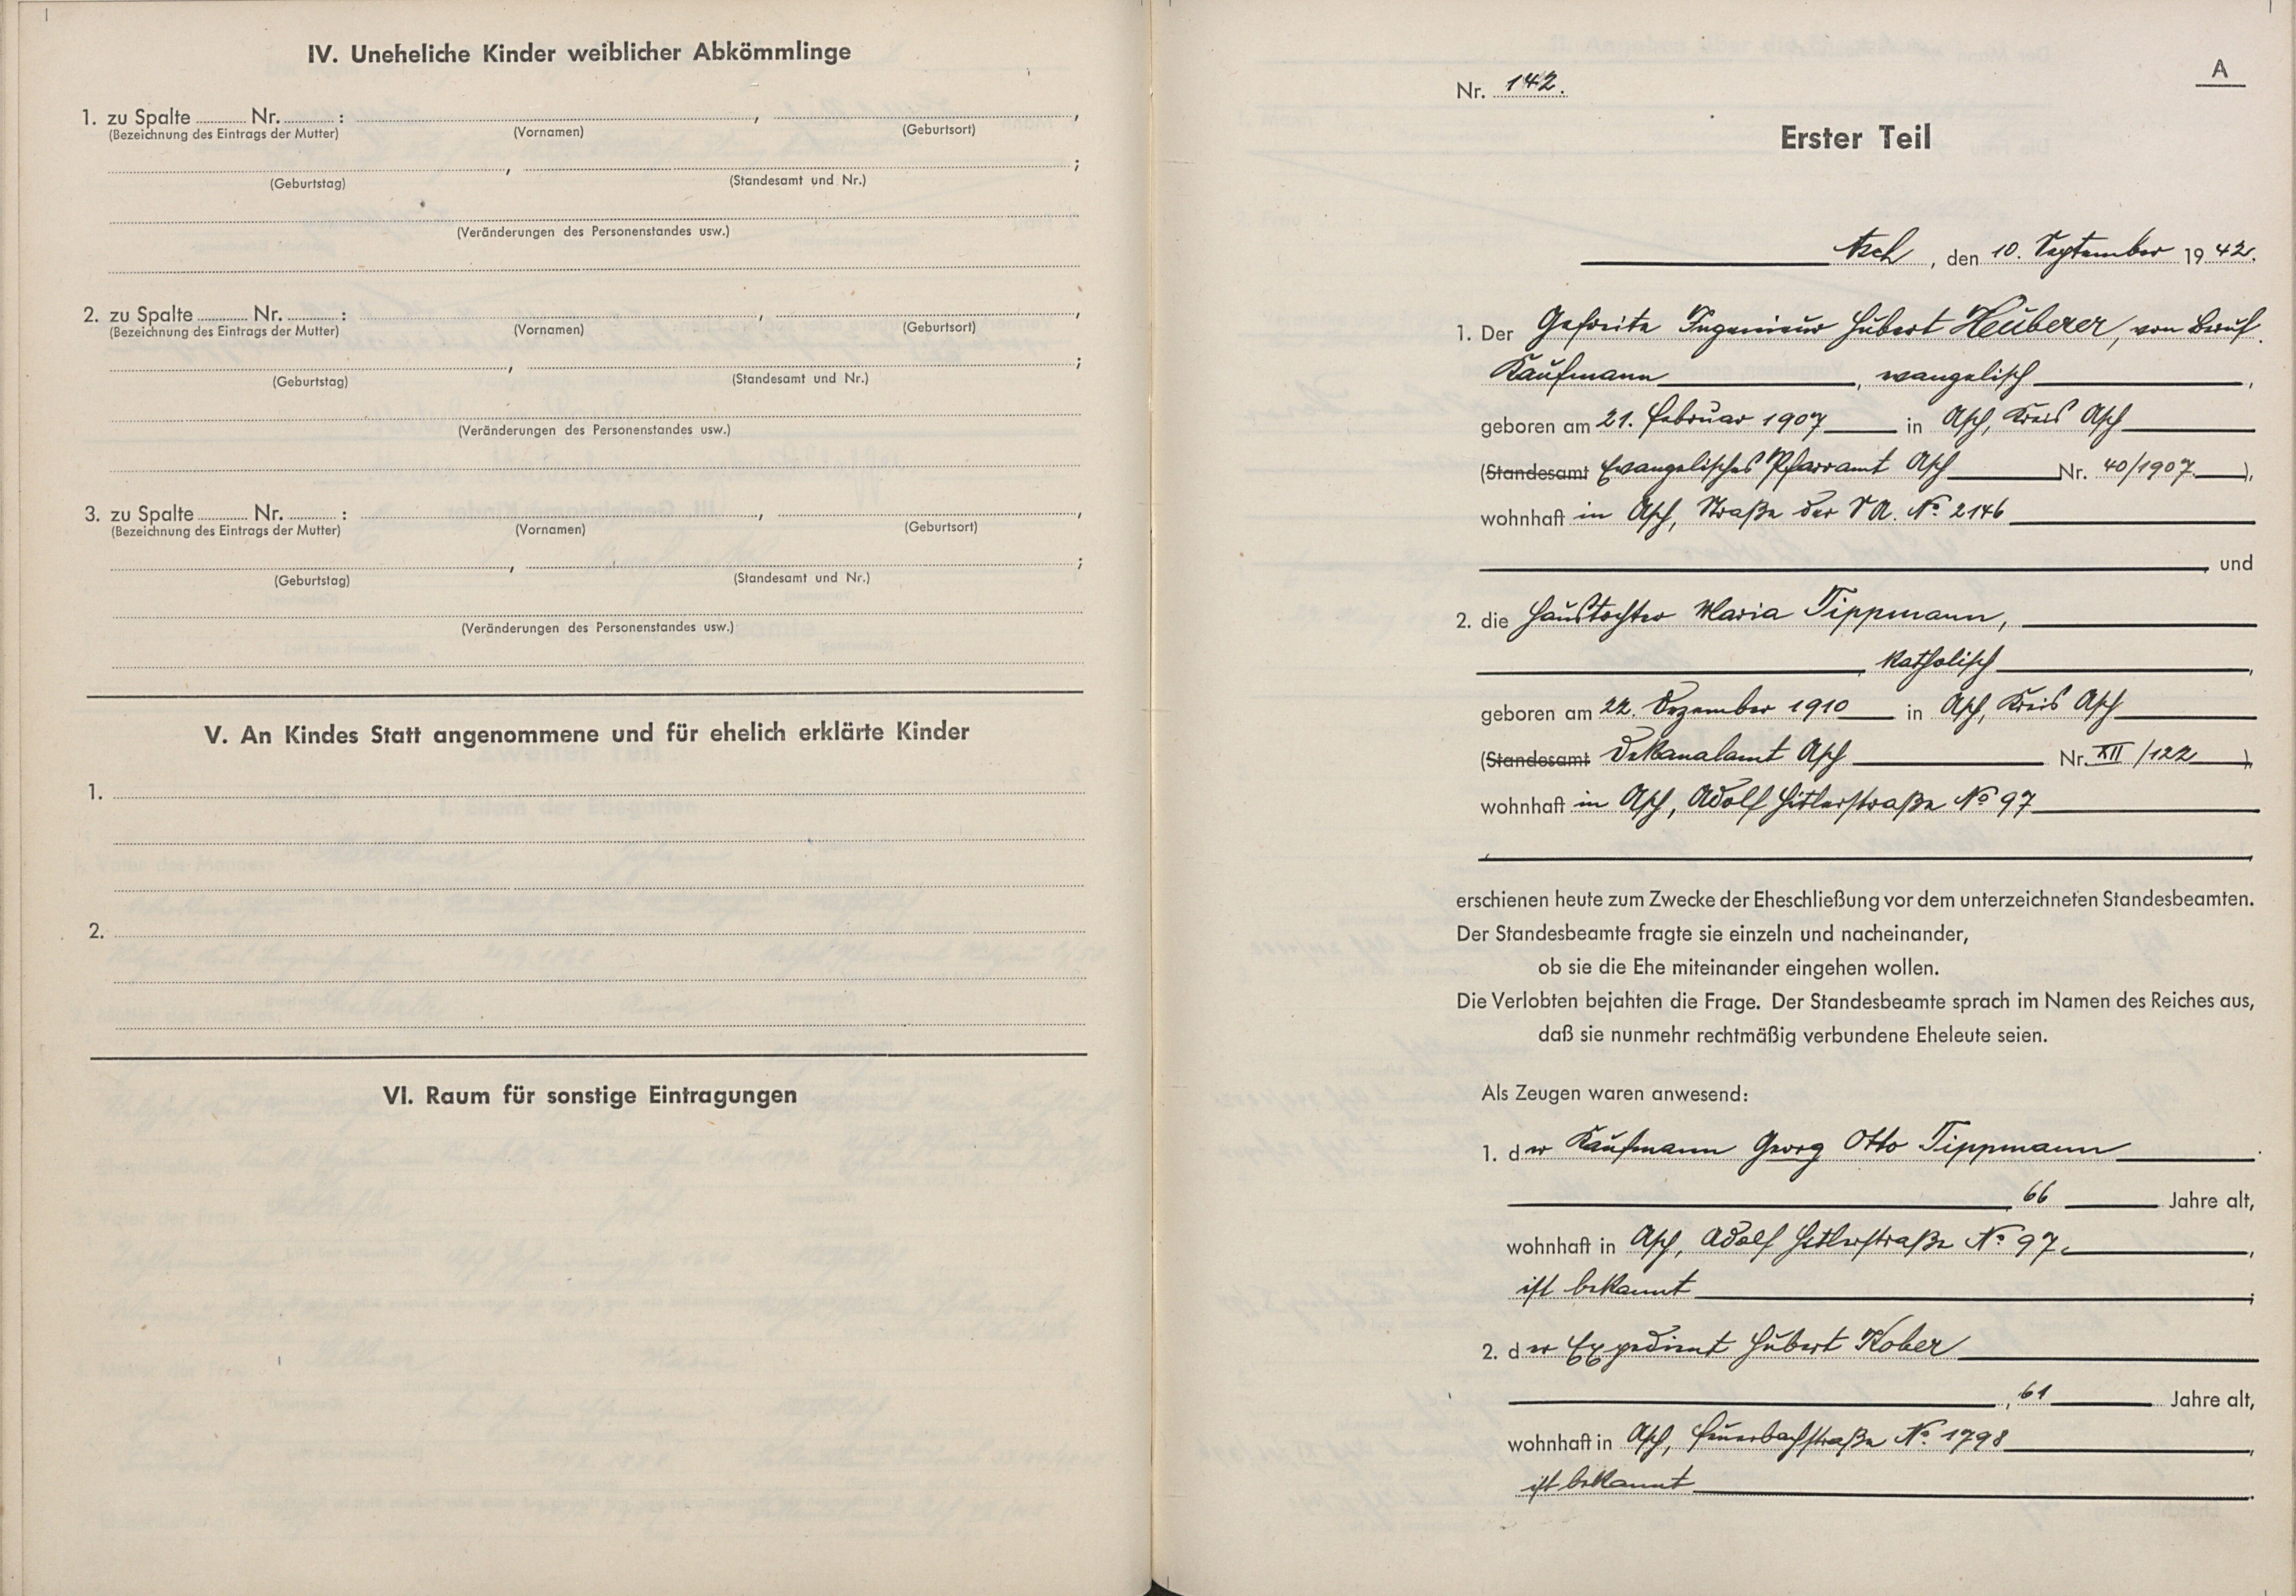 IV. Uneheliche Kinder weiblicher Abkömmlinge
1. zu Spalte Nr. : , ,
(Bezeichnung des Eintrags der Mutter) (Vornamen) (Geburtsort)
, ;
(Geburtstag) (Standesamt und Nr.)
(Veränderungen des Personenstandes usw.)
2. zu Spalte Nr. : , ,
(Bezeichnung des Eintrags der Mutter) (Vornamen) (Geburtsort)
, ;
(Geburtstag) (Standesamt und Nr.)
(Veränderungen des Personenstandes usw.)
3. zu Spalte Nr. : , ,
(Bezeichnung des Eintrags der Mutter) (Vornamen) (Geburtsort)
, ;
(Geburtstag) (Standesamt und Nr.)
(Veränderungen des Personenstandes usw.)
V. An Kindes Statt angenommene und für ehelich erklärte Kinder
1.
2.
VI. Raum für sonstige Eintragungen
A
Nr. 142.
Erster Teil
Asch, den 10. September 1942.
1. Der Gefreite Ingenieur Hubert Heuberer, von Beruf
Kaufmann, evangelisch,
geboren am 21. Februar 1907 in Asch, Kreis Asch
(Standesamt Evangelisches Pfarramt Asch Nr. 40/1907),
wohnhaft in Asch, Straße der SA. No 2146
, und
2. die Haustochter Maria Tippmann,
, katholisch,
geboren am 22. Dezember 1910 in Asch, Kreis Asch
(Standesamt Dekanalamt Asch Nr. XII/122),
wohnhaft in Asch, Adolf Hitlerstraße No 97
,
erschienen heute zum Zwecke der Eheschließung vor dem unterzeichneten Standesbeamten.
Der Standesbeamte fragte sie einzeln und nacheinander,
ob sie die Ehe miteinander eingehen wollen.
Die Verlobten bejahten die Frage. Der Standesbeamte sprach im Namen des Reiches aus,
daß sie nunmehr rechtmäßig verbundene Eheleute seien.
Als Zeugen waren anwesend:
1. der Kaufmann Georg Otto Tippmann
, 66 Jahre alt,
wohnhaft in Asch, Adolf Hitlerstraße No 97,
ist bekannt;
2. der Expedient Hubert Kober
, 61 Jahre alt,
wohnhaft in Asch, Feuerbachstraße No. 1798,
ist bekannt.